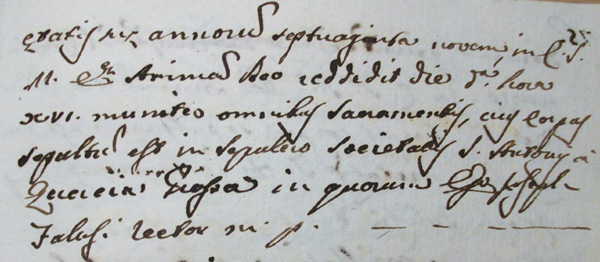 ętatis suę annorũ septuaginta novem, in C. S.
M. E. Animã Deo reddidit die dª. hora
XVI. munitus omnibus sacramentis, cuius corpus
sepultũ est in sepulcro societatis S. Antonij a
in quorum Ego Joseph
rector m. p.